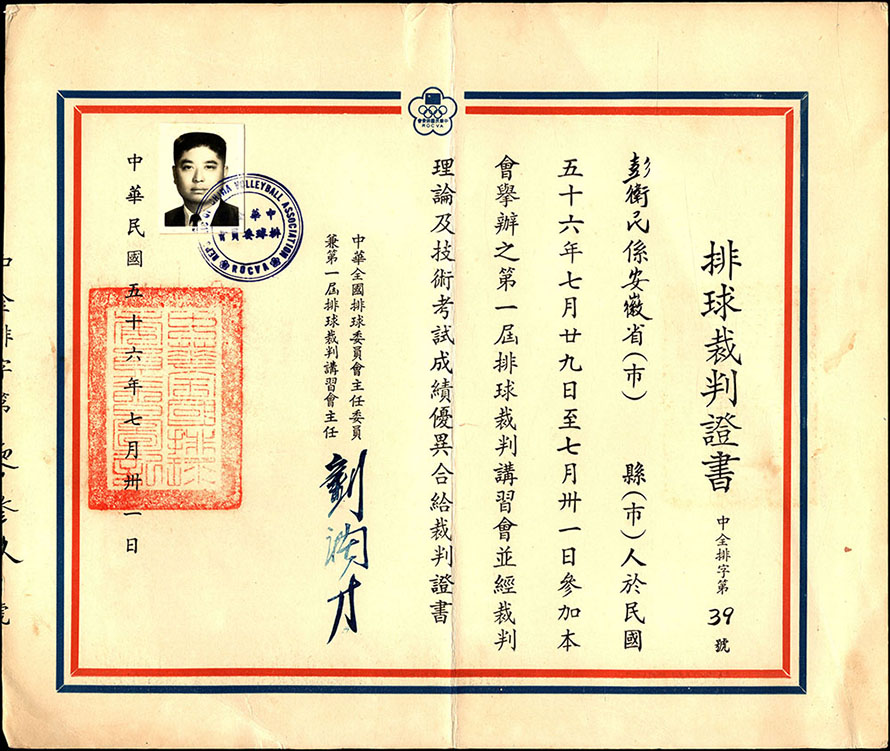 排球裁判證書
中全排字第39號
彭衛民係安徽省(市) 縣(市)人於民國
五十六年七月廿九日至七月卅一日參加本
會舉辦之第一屆排球裁判講習會並經裁判
理論及技術考試成績優異合給裁判證書
中華全國排球委員會主任委員
兼第一屆排球裁判講習會主任
中華民國五十六年七月卅一日
中全排字第 號
VOLLEYBALL ASSOCIATION
ROCVA
ROCVA